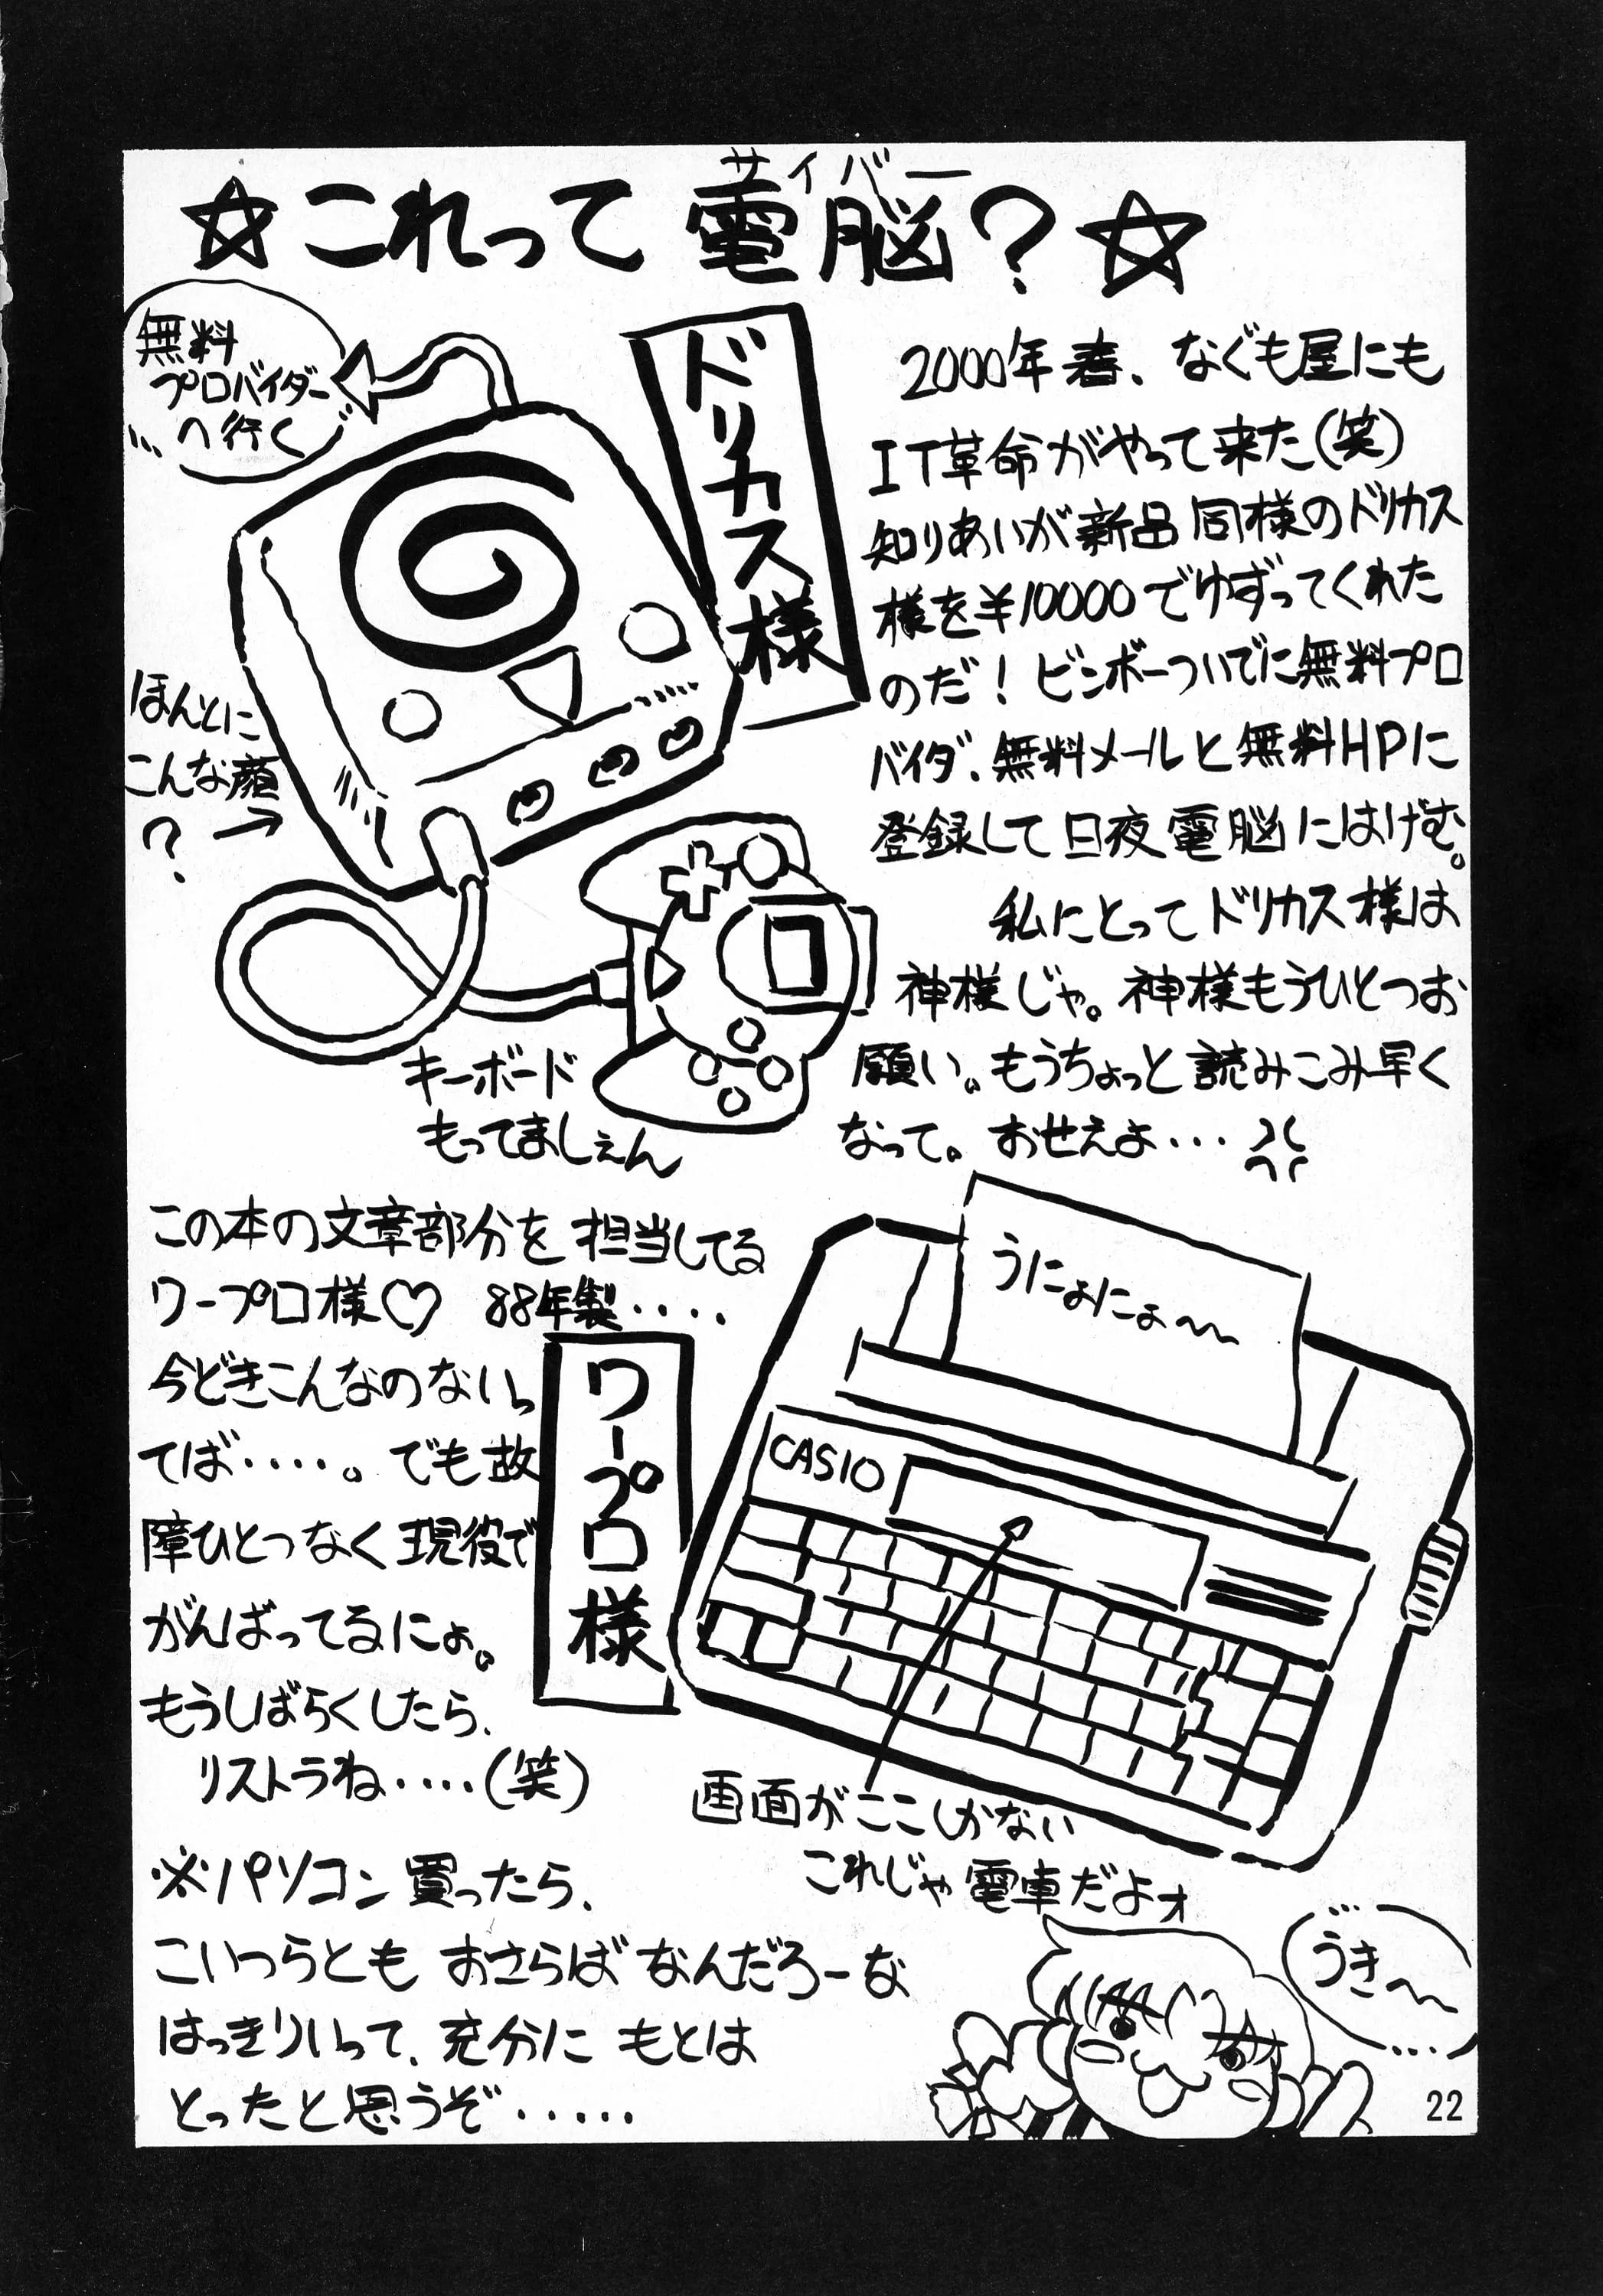 サイバー
☆これって電脳？☆
無料
プロバイダー
へ行く
ドリカス様
2000年春、なぐも屋にも
IT革命がやって来た(笑)
知りあいが新品同様のドリカス
様を¥10000でゆずってくれた
のだ！ビンボーついでに無料プロ
バイダ、無料メールと無料HPに
登録して日夜電脳にはげむ。
私にとってドリカス様は
神様じゃ。神様もうひとつお
願い。もうちょっと読みこみ早く
なって。おせえよ・・・
ほんとに
こんな顔
？→
キーボード
もってましぇん
この本の文章部分を担当してる
ワープロ様♡ 88年製・・・・
今どきこんなのないっ
てば・・・・。でも故
障ひとつなく現役で
がんばってるにょ。
もうしばらくしたら、
リストラね・・・・(笑)
ワープロ様
うにょにょ〜
CASIO
画面がここしかない
これじゃ電車だよォ
※パソコン買ったら、
こいつらともおさらばなんだろーな
はっきりいって、充分にもとは
とったと思うぞ・・・・・
うき〜
22